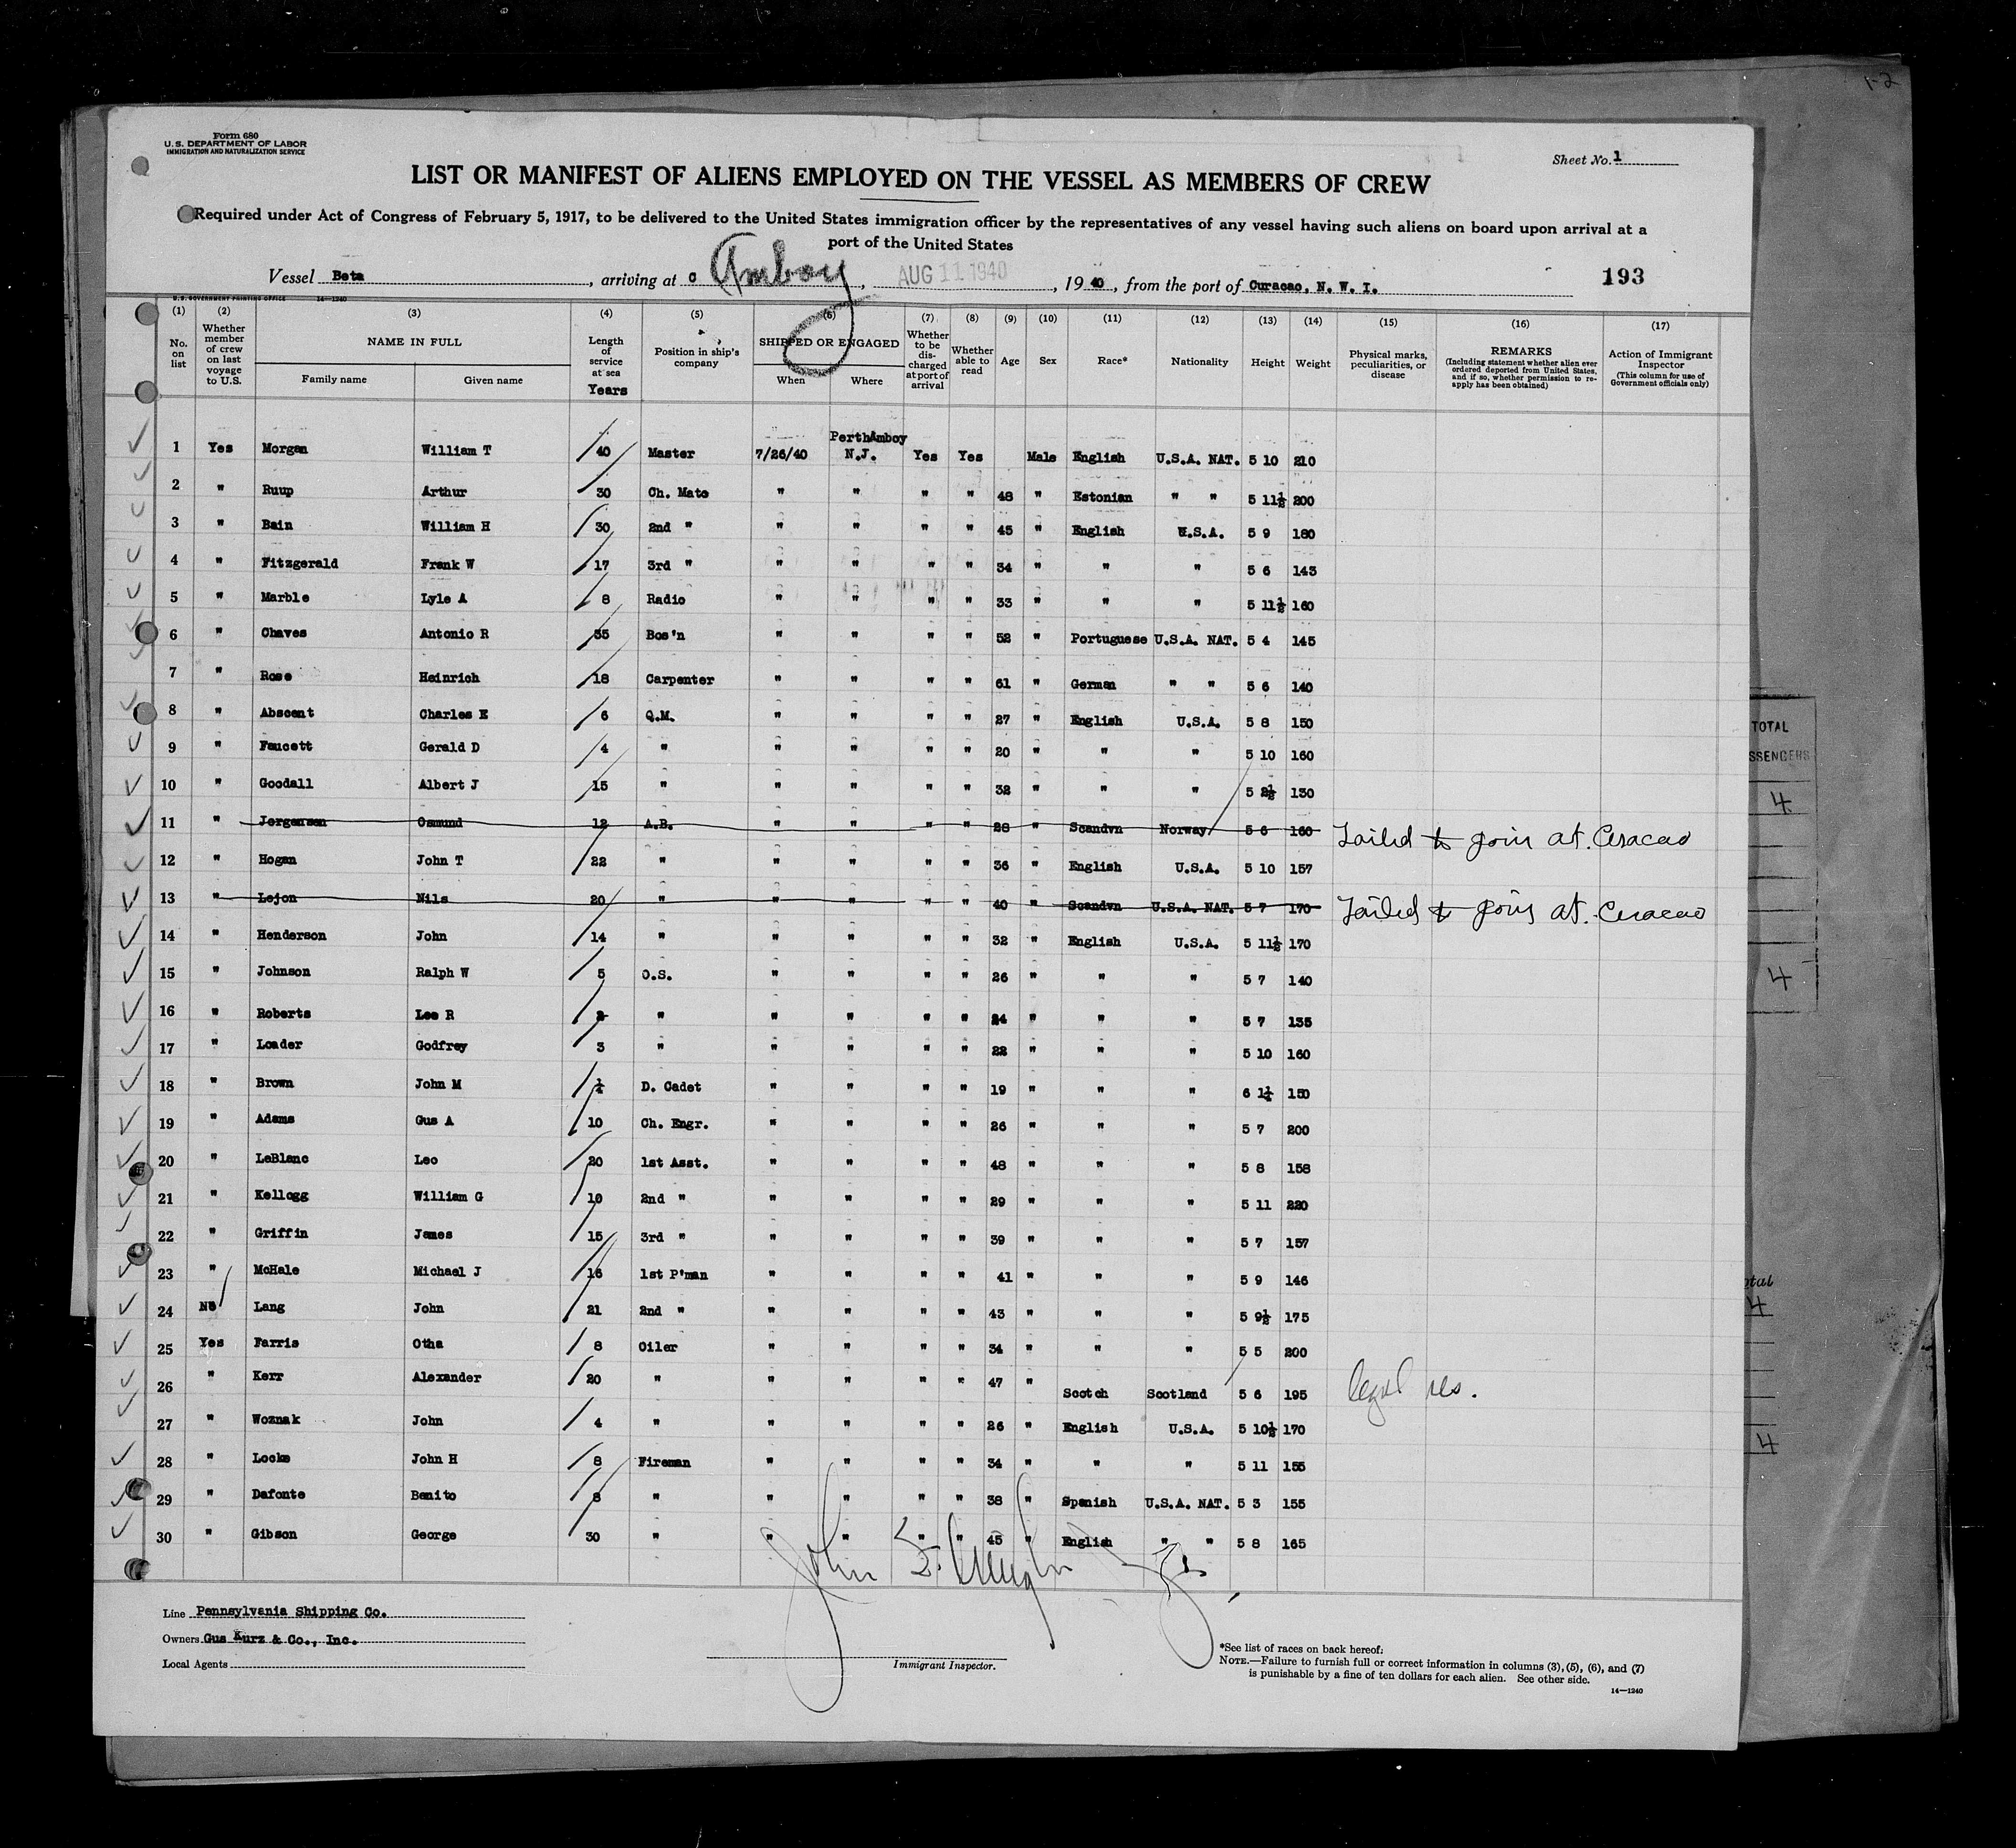 1-2
Form 680
U. S. DEPARTMENT OF LABOR
IMMIGRATION AND NATURALIZATION SERVICE
Sheet No. 1
LIST OR MANIFEST OF ALIENS EMPLOYED ON THE VESSEL AS MEMBERS OF CREW
Required under Act of Congress of February 5, 1917, to be delivered to the United States immigration officer by the representatives of any vessel having such aliens on board upon arrival at a
port of the United States
Vessel Beta, arriving at Amboy, AUG 11 1940, 1940, from the port of Curacao, N. W. I. 193
U.S. GOVERNMENT PRINTING OFFICE 14—1240
(1) No. on list (2) Whether member of crew on last voyage to U.S. (3) NAME IN FULL Family name Given name (4) Length of service at sea Years (5) Position in ship's company (6) SHIPPED OR ENGAGED When Where (7) Whether to be discharged at port of arrival (8) Whether able to read (9) Age (10) Sex (11) Race* (12) Nationality (13) Height (14) Weight (15) Physical marks, peculiarities, or disease (16) REMARKS (Including statement whether alien ever ordered deported from United States, and if so, whether permission to reapply has been obtained) (17) Action of Immigrant Inspector (This column for use of Government officials only)
1 Yes Morgan William T 40 Master 7/26/40 PerthAmboy N.J. Yes Yes Male English U.S.A. NAT. 5 10 210
2 " Ruup Arthur 30 Ch. Mate " " " " 48 " Estonian " " 5 11½ 200
3 " Bain William H 30 2nd " " " " " 45 " English U.S.A. 5 9 180
4 " Fitzgerald Frank W 17 3rd " " " " " 34 " " " 5 6 143
5 " Marble Lyle A 8 Radio " " " " 33 " " " 5 11½ 160
6 " Chaves Antonio R 35 Bos'n " " " " 52 " Portuguese U.S.A. NAT. 5 4 145
7 " Rose Heinrich 18 Carpenter " " " " 61 " German " " 5 6 140
8 " Abscent Charles E 6 Q.M. " " " " 27 " English U.S.A. 5 8 150
9 " Faucett Gerald D 4 " " " " " 20 " " " 5 10 160
10 " Goodall Albert J 15 " " " " " 32 " " " 5 2½ 130
11 " Jorgensen Osmund 12 A.B. " " " " 28 " Scandvn Norway 5 6 160 Failed to join at. Curacao
12 " Hogan John T 22 " " " " " 36 " English U.S.A. 5 10 157
13 " Lejon Nils 20 " " " " " 40 " Scandvn U.S.A. NAT. 5 7 170 Failed to join at. Curacao
14 " Henderson John 14 " " " " " 32 " English U.S.A. 5 11½ 170
15 " Johnson Ralph W 5 O.S. " " " " 26 " " " 5 7 140
16 " Roberts Lee R 2 " " " " " 24 " " " 5 7 135
17 " Loader Godfrey 3 " " " " " 22 " " " 5 10 160
18 " Brown John M D. Cadet " " " " 19 " " " 6 1½ 150
19 " Adams Gus A 10 Ch. Engr. " " " " 26 " " " 5 7 200
20 " LeBlanc Leo 20 1st Asst. " " " " 48 " " " 5 8 158
21 " Kellogg William G 10 2nd " " " " " 29 " " " 5 11 220
22 " Griffin James 15 3rd " " " " " 39 " " " 5 7 157
23 " McHale Michael J 16 1st P'man " " " " 41 " " " 5 9 146
24 No Lang John 21 2nd " " " " " 43 " " " 5 9½ 175
25 Yes Farris Otha 8 Oiler " " " " 34 " " " 5 5 200
26 " Kerr Alexander 20 " " " " " 47 " Scotch Scotland 5 6 195 legal res.
27 " Woznak John 4 " " " " " 26 " English U.S.A. 5 10½ 170
28 " Locke John H 8 Fireman " " " " 34 " " " 5 11 155
29 " Dafonte Benito 8 " " " " " 38 " Spanish U.S.A. NAT. 5 3 155
30 " Gibson George 30 " " " " " 45 " English " " 5 8 165
Line Pennsylvania Shipping Co.
Owners Gus Kurz & Co., Inc.
Local Agents
John
Immigrant Inspector.
*See list of races on back hereof.
NOTE.—Failure to furnish full or correct information in columns (3), (5), (6), and (7)
is punishable by a fine of ten dollars for each alien. See other side.
14—1240
TOTAL
SSENGERS
4
4
otal
4
4